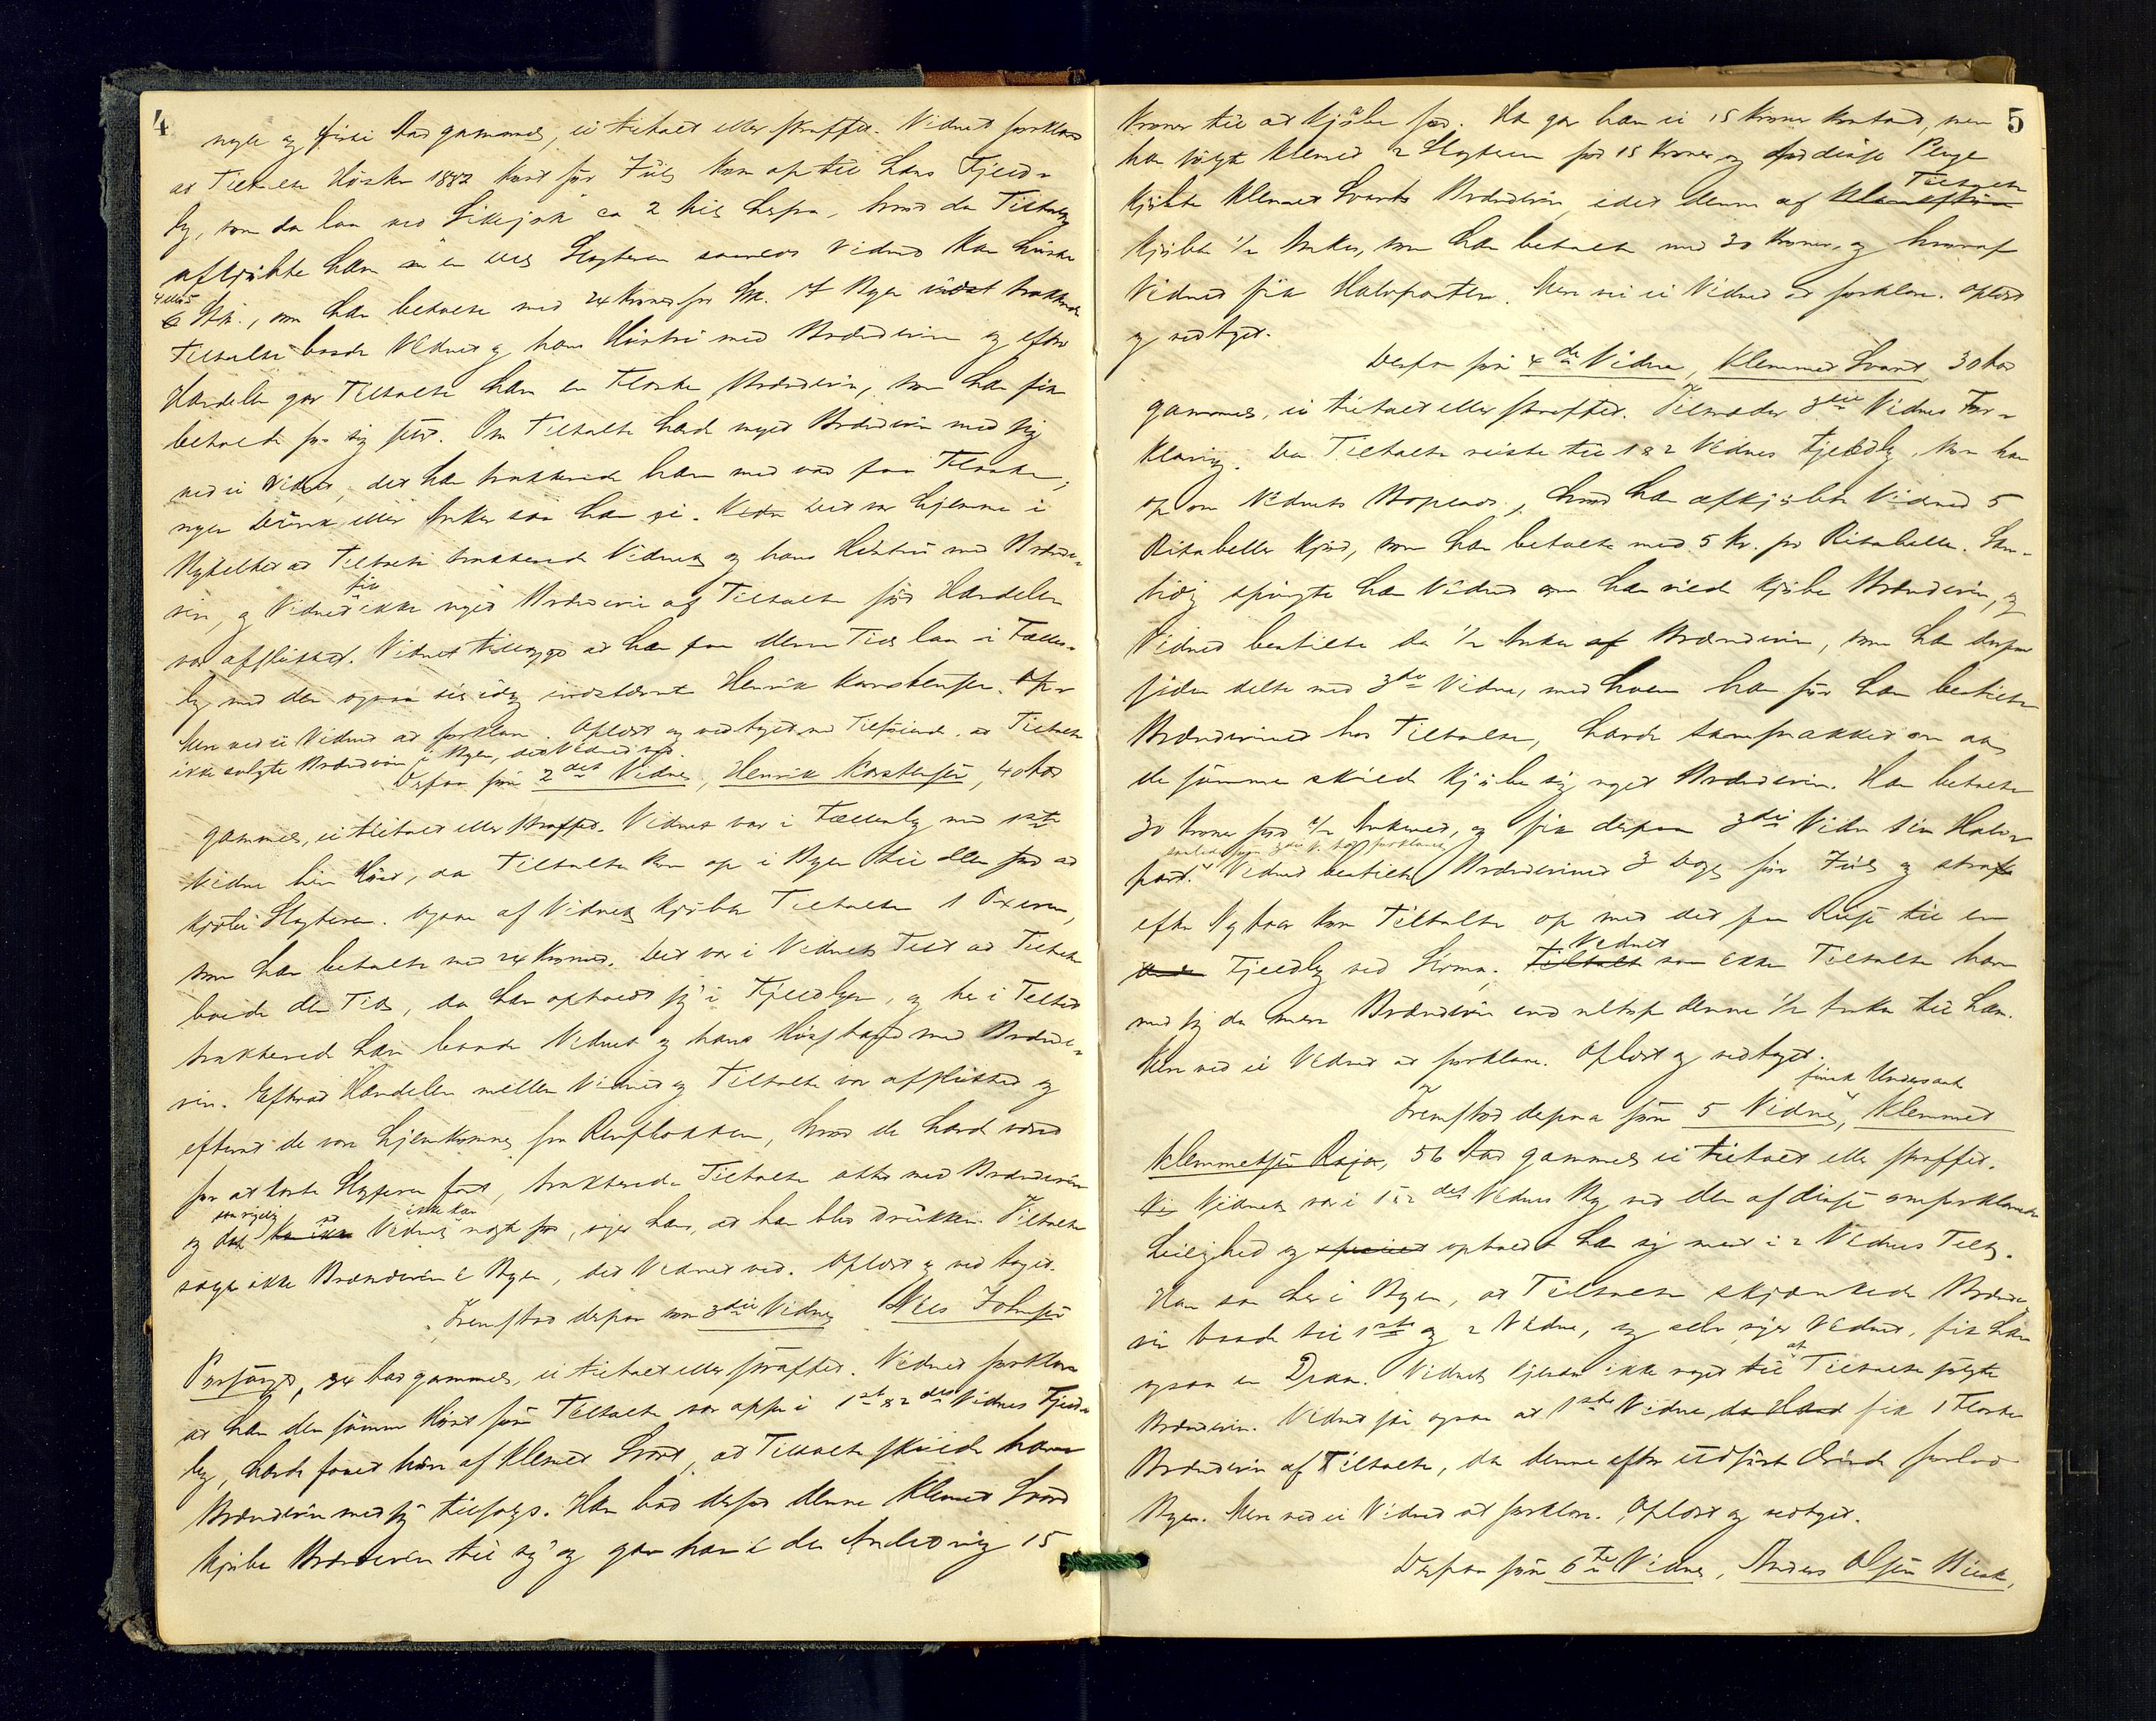 4
nyle og fire Aar gammel, ei tiltalt eller straffet. Vidnet forklarer
at Tiltalte Høsten 1882 kort før Jul kom op til hans Fjeld-
by, som da laa ved Likejok ca 2 Mil herfra, hvor da Tiltalte
afkjøbte ham en Slagteren saameget Vidnet kan huske
4 eller 5
Stk., som han betalte med 24 Kroner pr Stk. I Byen trakterede
Tiltalte baade Vidnet og hans Hustru med Brændevin og efter
Handelen gav Tiltalte ham en Flaske Brændevin, som han fik
betalt for sig selv. Om Tiltalte havde meget Brændevin med sig
ved ei Vidnet, det han trakterede ham med var fra Flaske,
nogen Dunk eller Anker saa han ei. Det var hjemme i
Vidnets Telt at Tiltalte trakterede Vidnet og hans Hustru med Brænde-
fik
vin, og Vidnet ikke noget Brændevin af Tiltalte før Handelen
var afsluttet. Vidnet at han paa denne Tid laa i Fælles-
by med den ogsaa indstævnte Henrik Karstensen.
Mere ved ei Vidnet at forklare. Oplæst og vedtaget med Tilføiende, at Tiltalte
ikke solgte Brændevin i Byen, det Vidnet ved.
Derpaa som 2det Vidne, Henrik Karstensen, 40 Aar
gammel, ei tiltalt eller straffet. Vidnet var i Fællesby med 1ste
Vidne hin Høst, da Tiltalte kom op i Byen til dem for at
kjøbe Slagteren. Ogsaa af Vidnet kjøbte Tiltalte 1 Oxeren,
som han betalte med 24 Kroner. Det var i Vidnets Telt at Tiltalte
boede den Tid, da han opholdt sig i Fjeldbyen, og her i Teltet
trakterede han baade Vidnet og hans Husstand med Brænde-
vin. Efterat Handelen mellem Vidnet og Tiltalte var afsluttet og
efterat de vare hjemkomne fra Renflokken, hvor de havde været
for at tage Slagteren fast, trakterede Tiltalte atter med Brændevin
saa rigelig at ikke kan
og Vidnet negte for, siger han, at han blev drukken. Tiltalte
solgte ikke Brændevin i Byen, det Vidnet ved. Oplæst og vedtaget.
Fremstod derpaa som 3die Vidne Nils Johnsen
34 Aar gammel, ei tiltalt eller straffet. Vidnet forklarer
at han den samme Høst som Tiltalte var oppe i 1ste & 2det Vidnes Fjeld-
by, havde faaet høre af Klemet Svart, at Tiltalte skulde have
Brændevin med sig tilsalgs. Han bad derfor denne Klemet Svart
kjøbe Brændevin til sig og gav ham i den Anledning 15
5
Kroner til at kjøbe for. Han gav ham ei 15 Kroner kontant, men
han solgte Klemet 2 Slagteren for 15 Kroner og for disse Penge
Tiltalte
kjøbte Klemet Svart Brændevin, idet denne af
kjøbte 1/2 Anker, som han betalte med 30 Kroner, og hvoraf
Vidnet fik Halvparten. Mere ved ei Vidnet at forklare. Oplæst
og vedtaget.
Derpaa som 4de Vidne, Klemmet Svart, 30 Aar
gammel, ei tiltalt eller straffet. Tiltræder 3die Vidnes For-
klaring. Da Tiltalte reiste til 1 & 2 Vidnes Fjeldby, kom han
op om Vidnets Bopæl, hvor han afkjøbte Vidnet 5
Ritabeller Kjød, som han betalte med 5 Kr. pr Ritabelle. Sam-
tidig spurgte han Vidnet om han vilde kjøbe Brændevin, og
Vidnet bestilte da 1/2 Anker Brændevin, som han derpaa
siden delte med 3die Vidne, med hvem han før han bestilte
Brændevinet hos Tiltalte, havde samsnakket om at
de sammen skulde kjøbe sig noget Brændevin. Han betalte
30 Kroner for 1/2 Ankeret, og fik derpaa 3die Vidne sin Halv-
saaledes som 3die V. har forklaret
part. Vidnet bestilte Brændevinet 3 Dage før Jul og strax
efter Nytaar kom Tiltalte op med det paa Reise til en
Vidnet
Fjeldby ved Sirma. saa ikke Tiltalte have
med sig da mere Brændevin end netop denne 1/2 Anker til ham.
Mere ved ei Vidnet at forklare. Oplæst og vedtaget.
finsk Undersaat
Fremstod derpaa som 5 Vidne, Klemmet
Klemmetsen 56 Aar gammel ei tiltalt eller straffet.
Vidnet var i 1 & 2det Vidnes By ved den af disse omforklarede
Leilighed og opholdt han sig mest i 2 Vidnes Telt.
Han saa her i Byen, at Tiltalte skjænkede Brænde-
vin baade til 1ste og 2 Vidne, og selv, siger Vidnet, fik han
at
ogsaa en Dram. Vidnet kjender ikke noget til Tiltalte solgte
Brændevin. Vidnet saa ogsaa at 1ste Vidne fik 1 Flaske
Brændevin af Tiltalte, da denne efter udført Ærinde forlod
Byen. Mere ved ei Vidnet at forklare. Oplæst og vedtaget.
Derpaa som 6te Vidne, Anders Olsen